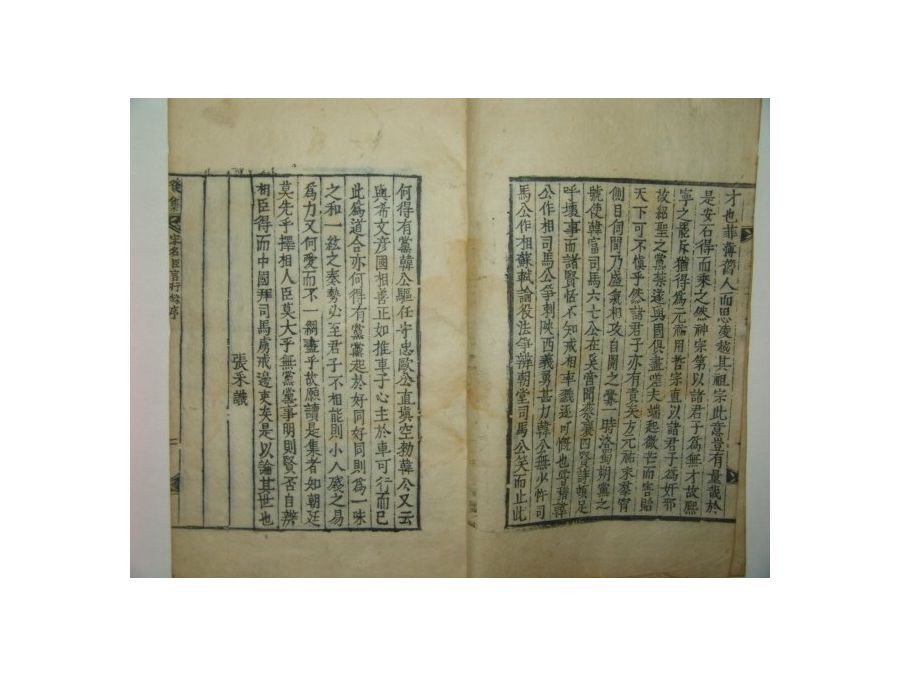 才也菲薄舊人而思凌越其祖宗此意豈有量哉於
是安石得而乘之然神宗第以諸君子爲無才故熙
寧之能訴猶得爲元祐用哲宗直以諸君子爲奸邪
故紹聖之黨蔡遂與國俱盡嗟夫端起微芒而害貽
天下可不慎乎然諸君子亦有責矣方元祐來羣賢
側目伺間乃盛氣相攻自開之釁一時洛蜀朔黨之
號使韓富司馬六七公在奚啻聞蔡襄四賢詩頓足
呼壞事而諸賢恬不知戒相率議逐可慨也嘗籍韓
公作相司馬公爭刺陜西義勇甚力韓公無少忤司
馬公作相蘇軾論役法爭辨朝堂司馬公笑而止此
何得有黨韓公驅任守忠歐公直填空勑韓公又云
與希文彥國相善正如推車子心主於車可行而已
此爲道合亦何得有黨黨起於好同好同則爲一味
之和一絃之奏勢必至君子不相能則小人廢之易
爲力又何愛而不一網盡乎故願讀是集者知朝廷
莫先乎擇相人臣莫大乎無黨黨事明則賢否自辨
相臣得而中國拜司馬虜戒邊吏矣是以論其世也
張采議
後集
宋名臣言行錄序